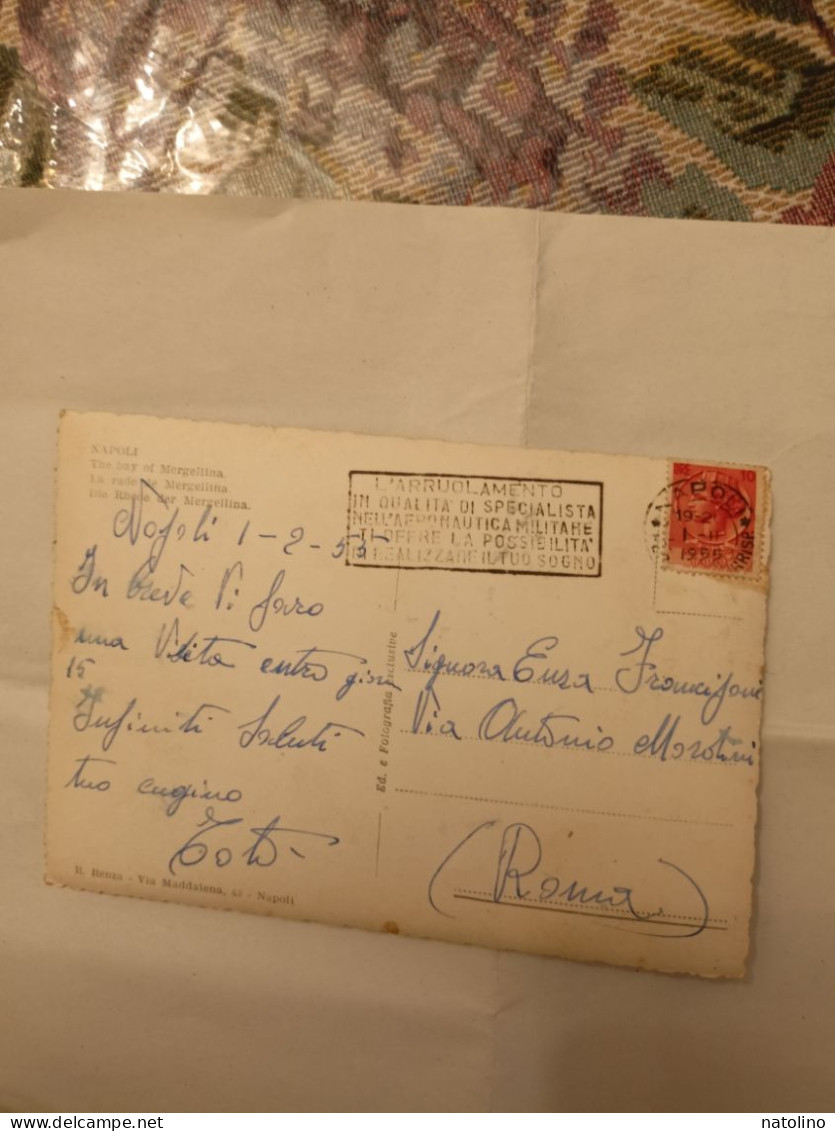 NAPOLI
The bay of Mergellina.
La rade de Mergellina.
Die Rhede der Mergellina.
L'ARRUOLAMENTO
IN QUALITA' DI SPECIALISTA
NELL'AERONAUTICA MILITARE
TI OFFRE LA POSSIBILITA'
DI REALIZZARE IL TUO SOGNO
NAPOLI
19-2
1-II
1955
10
Napoli 1-2-55
In breve Vi farò
una Visita entro giorni
15
Infiniti Saluti
tuo cugino
Totò
Ed. e Fotografia esclusive
Signora Enza
Via Antonio Morotini
(Roma)
R. Renza - Via Maddalena, 43 - Napoli
natolino